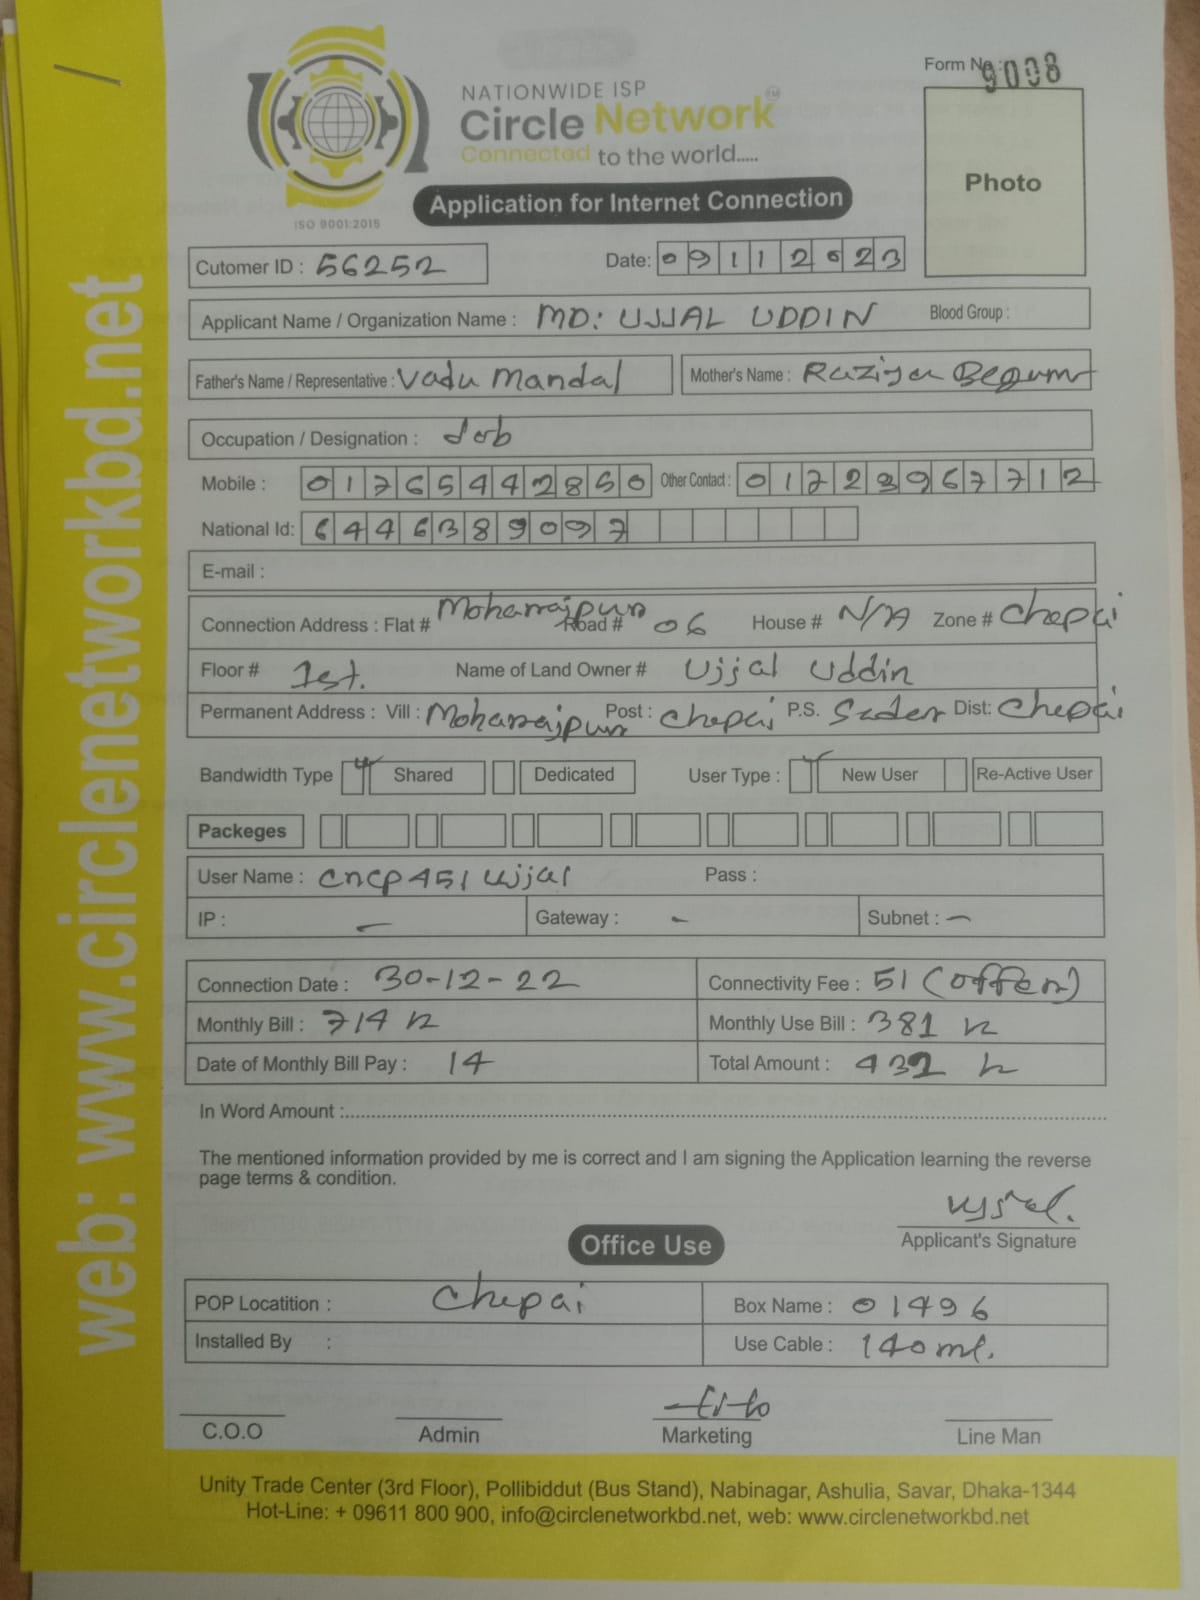 Form No : 9008
NATIONWIDE ISP
Circle Network TM
Connected to the world.....
ISO 9001:2015
Application for Internet Connection
Photo
Cutomer ID : 56252
Date: 09112023
Applicant Name / Organization Name : MD: UJJAL UDDIN Blood Group :
Father's Name / Representative : Vadu Mandal Mother's Name : Raziya Begum
Occupation / Designation : Job
Mobile : 01765442850 Other Contact : 01723967712
National Id: 6446389097
E-mail :
Connection Address : Flat # Moharajpur Road # 06 House # N/A Zone # Chepai
Floor # 1st. Name of Land Owner # Ujjal Uddin
Permanent Address : Vill : Moharajpur Post : Chepai P.S. Sader Dist: Chepai
Bandwidth Type Shared Dedicated User Type : New User Re-Active User
Packeges
User Name : cncp451ujjal Pass :
IP : – Gateway : – Subnet : –
Connection Date : 30-12-22 Connectivity Fee : 51 (offer)
Monthly Bill : 714 Monthly Use Bill : 381
Date of Monthly Bill Pay : 14 Total Amount : 432
In Word Amount :
The mentioned information provided by me is correct and I am signing the Application learning the reverse
page terms & condition.
Applicant's Signature
Office Use
POP Locatition : Chepai Box Name : 01496
Installed By : Use Cable : 140ml.
C.O.O Admin Marketing Line Man
Unity Trade Center (3rd Floor), Pollibiddut (Bus Stand), Nabinagar, Ashulia, Savar, Dhaka-1344
Hot-Line: + 09611 800 900, info@circlenetworkbd.net, web: www.circlenetworkbd.net
web: www.circlenetworkbd.net